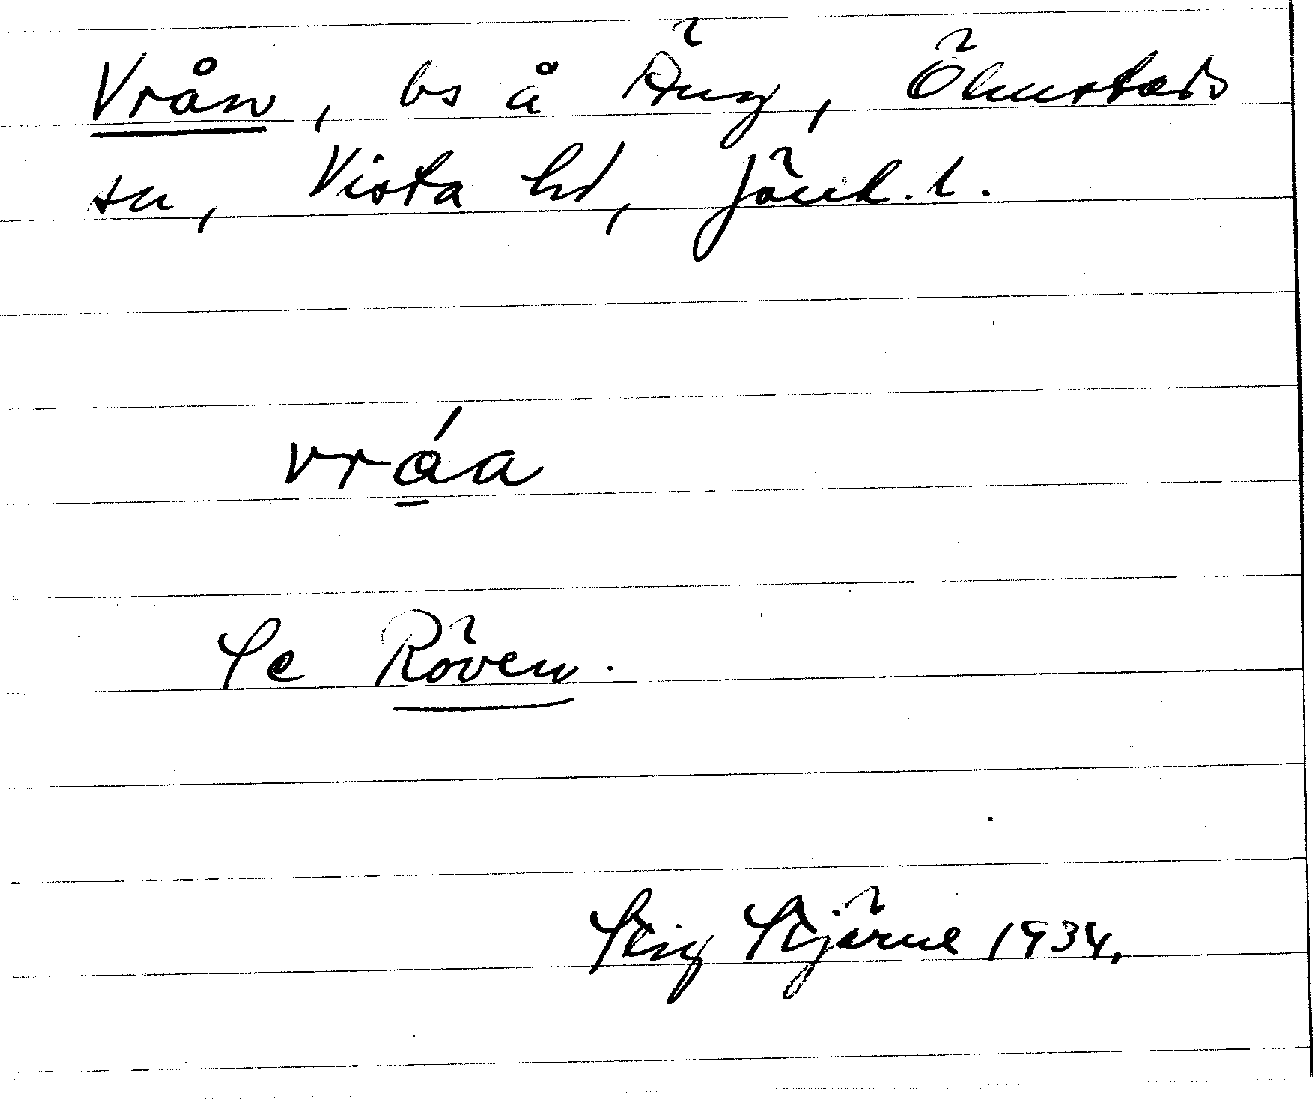 Vrån, bs å Äng, Ölmstads
sn, Vista hd, Jönk. l.
vrá̱a
Se Röven.
Stig Stjärne 1934.